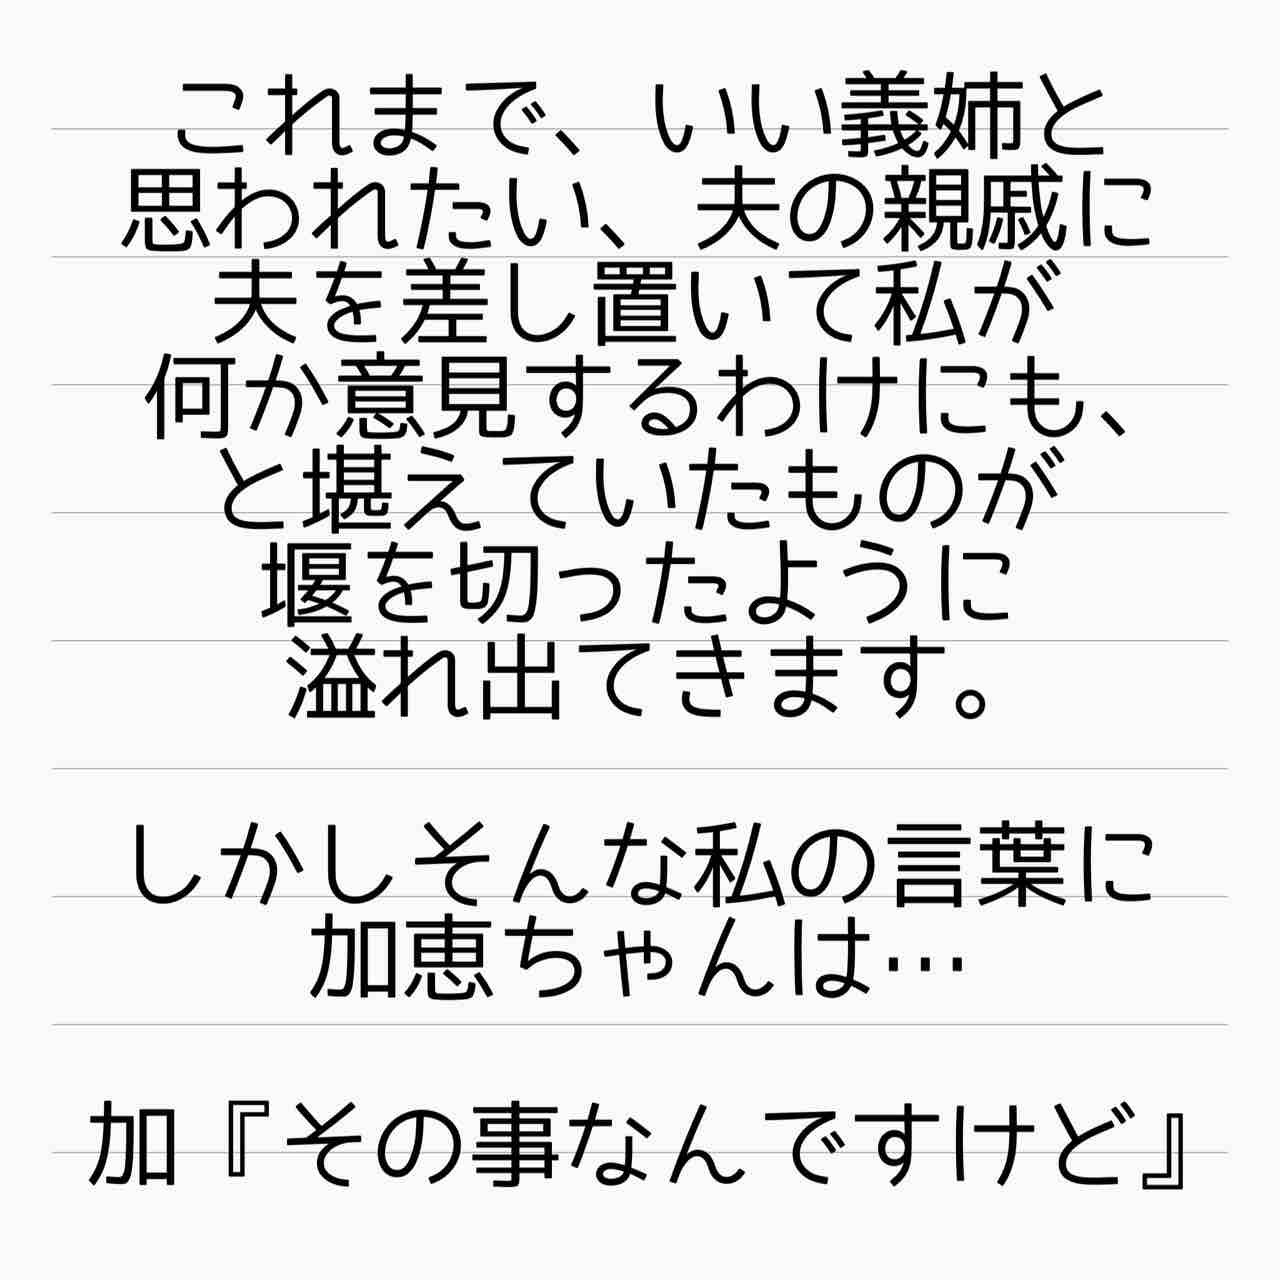 これまで、いい義姉と
思われたい、夫の親戚に
夫を差し置いて私が
何か意見するわけにも、
と堪えていたものが
堰を切ったように
溢れ出てきます。
しかしそんな私の言葉に
加恵ちゃんは…
加『その事なんですけど』